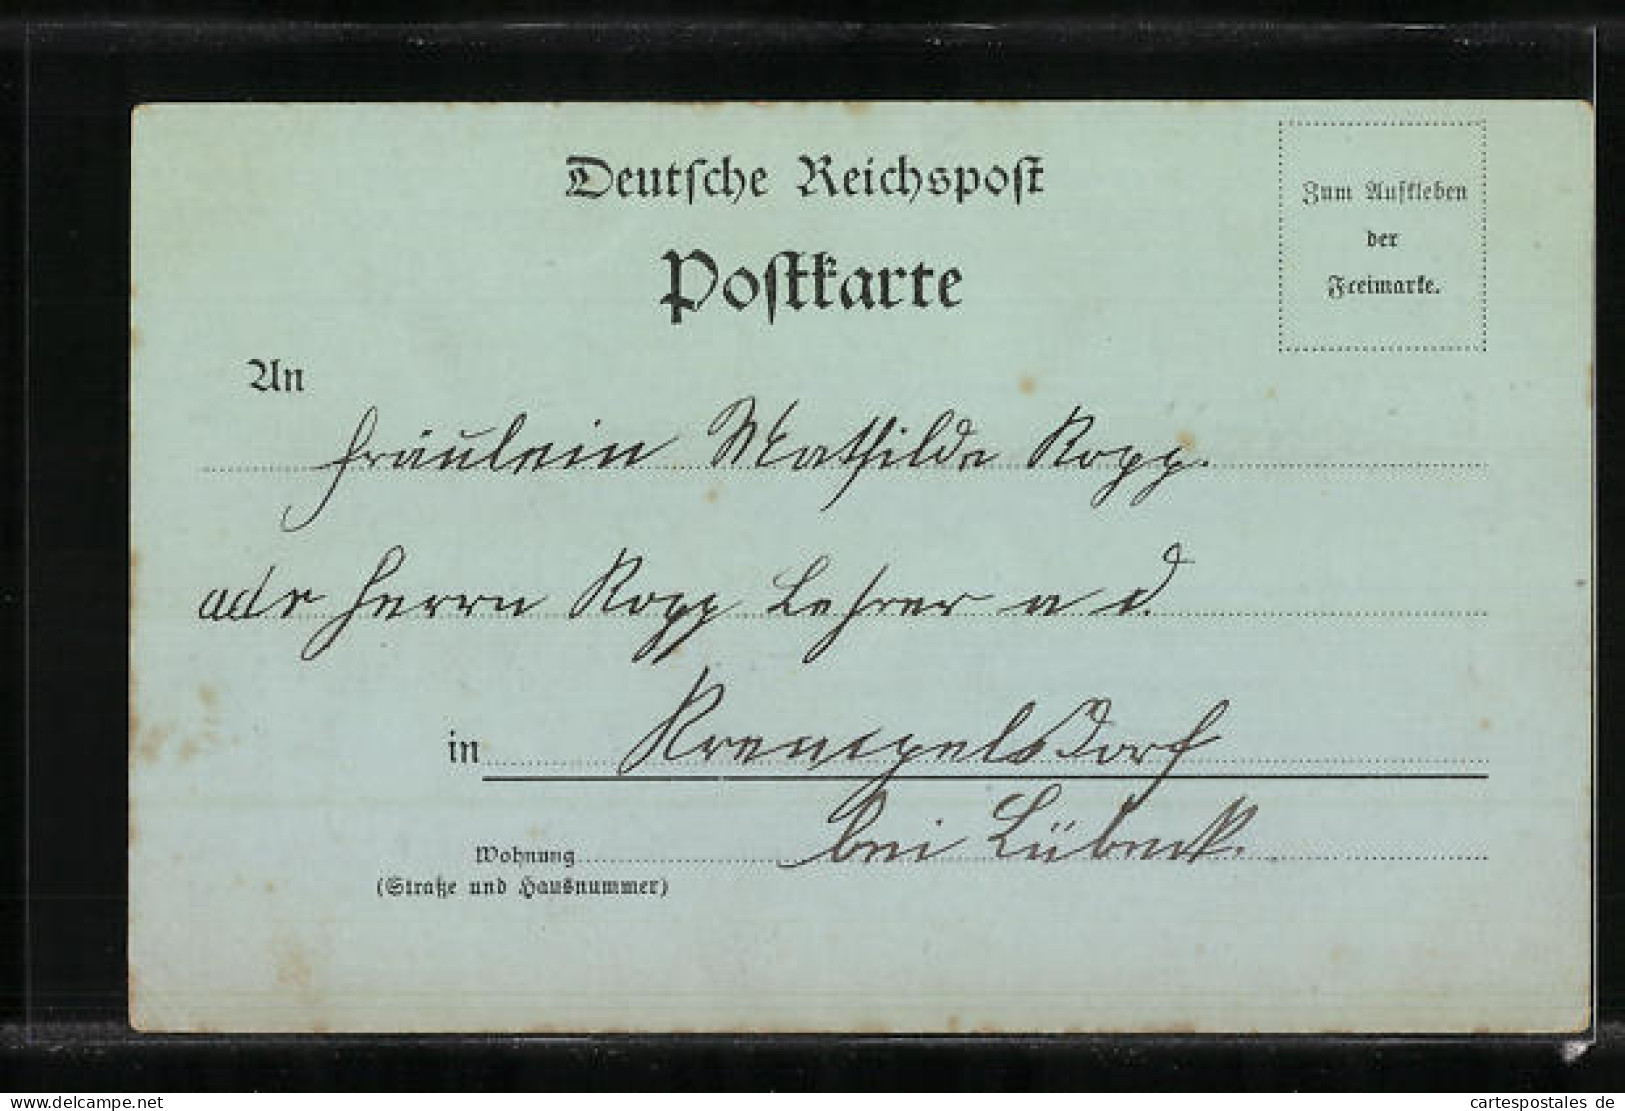 Deutsche Reichspost
Postkarte
Zum Aufkleben
der
Freimarke.
An
Fräulein Mathilde Kopp.
adr Herrn Kopp Lehrer a d.
in Krempelsdorf
bei Lübeck.
Wohnung
(Straße und Hausnummer)
www.delcampe.net
cartespostales de